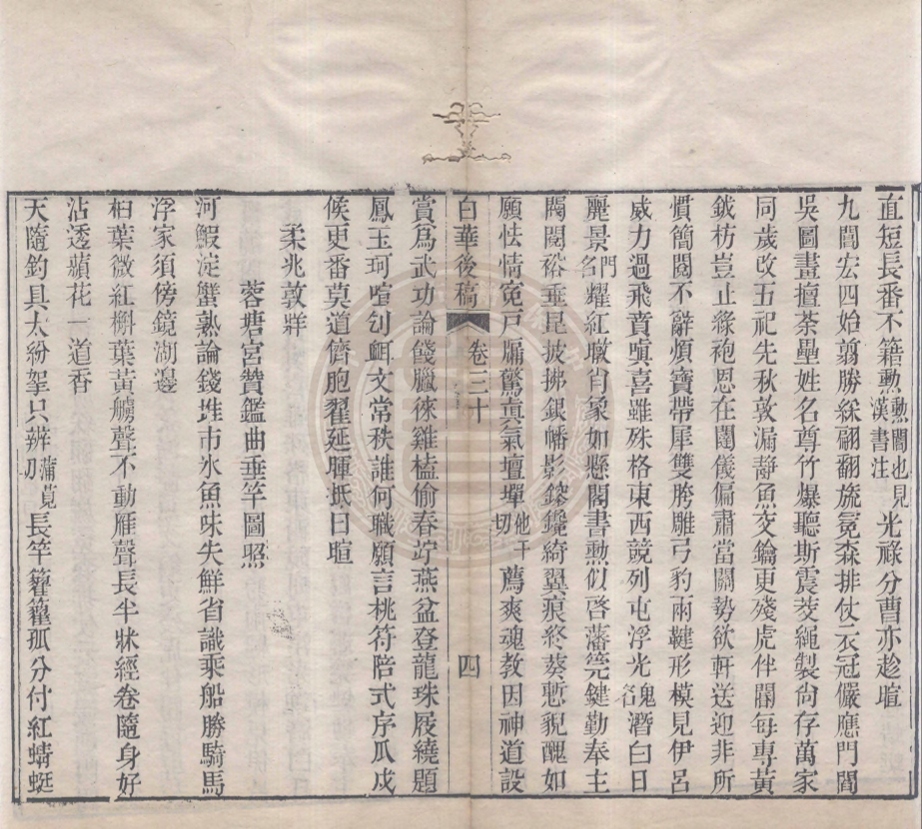 直短長番不籍勳勳閽也見漢書注光祿分曹亦趁暄
九閶宏四始翦勝綵翩翻旒冕森排仗衣冠儼應門閶
吳圖畫擅荼壘姓名尊竹爆聽斯震茭繩製尙存萬家
同歲改五祀先秋敦漏靜魚交鑰更殘虎伴閽每專黃
鉞枋豈止綠袍恩在閫儀偏肅當關勢欲軒送迎非所
慣簡閱不辭煩寶帶犀雙胯雕弓豹兩鞬形模見伊呂
威力過飛賁嗔喜雖殊格東西競列屯浮光鬼名潛白日
麗景門名耀紅暾肖象如懸閣書勳似啓藩筦鍵勤奉主
閥閱裕垂昆披拂銀幡影鎗鑱綺翼痕終葵慙貌醜如
願怯情寃戸牖驚眞氣壇墠他干切薦爽魂教因神道設
白華後稿 卷三十 四
賞爲武功論餞臘徠雞榼偷春竚燕盆登龍珠屐繞題
鳳玉珂喧刉衈文常秩誰何職願言桃符陪式序瓜戍
候更番莫道儕胞翟延暉抵日暄
柔兆敦牂
蓉塘宮贊鑑曲垂竿圖照
河鰕淀蟹熟論錢堆市氷魚味失鮮省識乘船勝騎馬
浮家須傍鏡湖邊
桕葉微紅槲葉黃艣聲不動雁聲長半牀經卷隨身好
沾透蘋花一道香
天隨釣具太紛挐只辨蒲莧切長竿籊籊孤分付紅蜻蜓